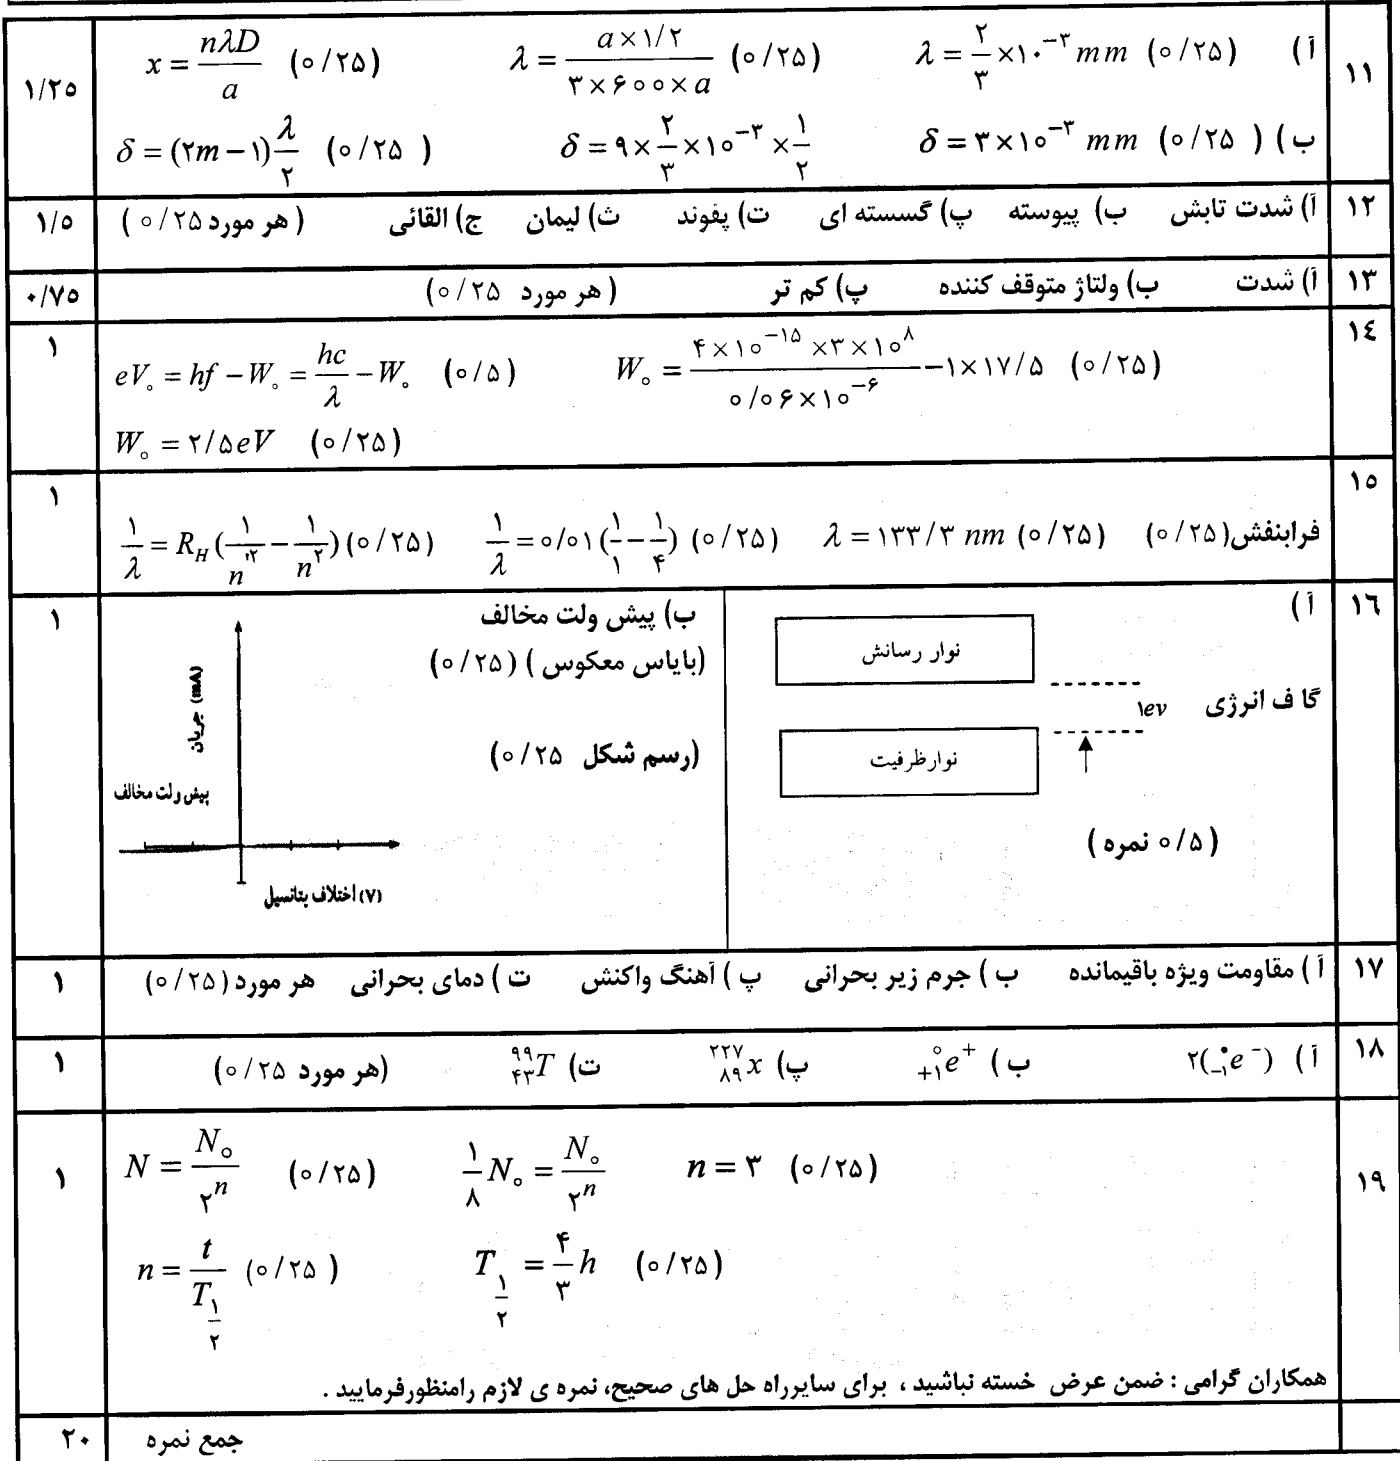 ۱۱
آ ) x = nλD / a (۰/۲۵) λ = a×۱/۲ / ۳×۶۰۰×a (۰/۲۵) λ = ۲/۳ ×۱۰^−۳ mm (۰/۲۵)
۱/۲۵
ب ) δ = (۲m−۱) λ/۲ (۰/۲۵ ) δ = ۹× ۲/۳ ×۱۰^−۳ × ۱/۲ δ = ۳×۱۰^−۳ mm (۰/۲۵ )
۱۲
آ) شدت تابش ب) پیوسته پ) گسسته ای ت) پفوند ث) لیمان ج) القائی ( هر مورد ۰/۲۵ )
۱/۵
۱۳
آ) شدت ب) ولتاژ متوقف کننده پ) کم تر ( هر مورد ۰/۲۵ )
۰/۷۵
۱۴
eV₀ = hf − W₀ = hc/λ − W₀ (۰/۵ ) W₀ = ۴×۱۰^−۱۵ ×۳×۱۰^۸ / ۰/۰۶×۱۰^−۶ −۱×۱۷/۵ (۰/۲۵ )
۱
W₀ = ۲/۵eV (۰/۲۵ )
۱۵
۱/λ = R_H (۱/n'^۲ − ۱/n^۲) (۰/۲۵ ) ۱/λ = ۰/۰۱ (۱/۱ − ۱/۴) (۰/۲۵ ) λ = ۱۳۳/۳ nm (۰/۲۵ ) فرابنفش(۰/۲۵ )
۱
۱۶
آ )
نوار رسانش
گا ف انرژی
۱ev
نوارظرفیت
( ۰/۵ نمره )
ب) پیش ولت مخالف
(بایاس معکوس ) (۰/۲۵ )
(رسم شکل ۰/۲۵ )
جریان (mA)
پیش ولت مخالف
اختلاف پتانسیل (V)
۱
۱۷
آ ) مقاومت ویژه باقیمانده ب ) جرم زیر بحرانی پ ) آهنگ واکنش ت ) دمای بحرانی هر مورد (۰/۲۵ )
۱
۱۸
آ ) ۲(₋₁⁰e⁻) ب ) ₊₁⁰e⁺ پ) ²²⁷₈₉x ت) ⁹⁹₄₃T (هر مورد ۰/۲۵ )
۱
۱۹
N = N₀ / ۲^n (۰/۲۵ ) ۱/۸ N₀ = N₀ / ۲^n n = ۳ (۰/۲۵ )
۱
n = t / T_۱/۲ (۰/۲۵ ) T_۱/۲ = ۴/۳ h (۰/۲۵ )
همکاران گرامی : ضمن عرض خسته نباشید ، برای سایرراه حل های صحیح، نمره ی لازم رامنظورفرمایید .
جمع نمره ۲۰